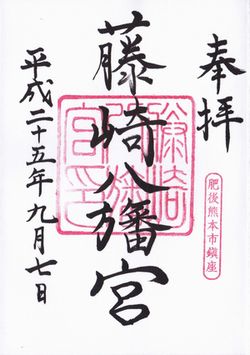 奉拝
肥後熊本市鎮座
藤崎八旛宮
平成二十五年九月七日